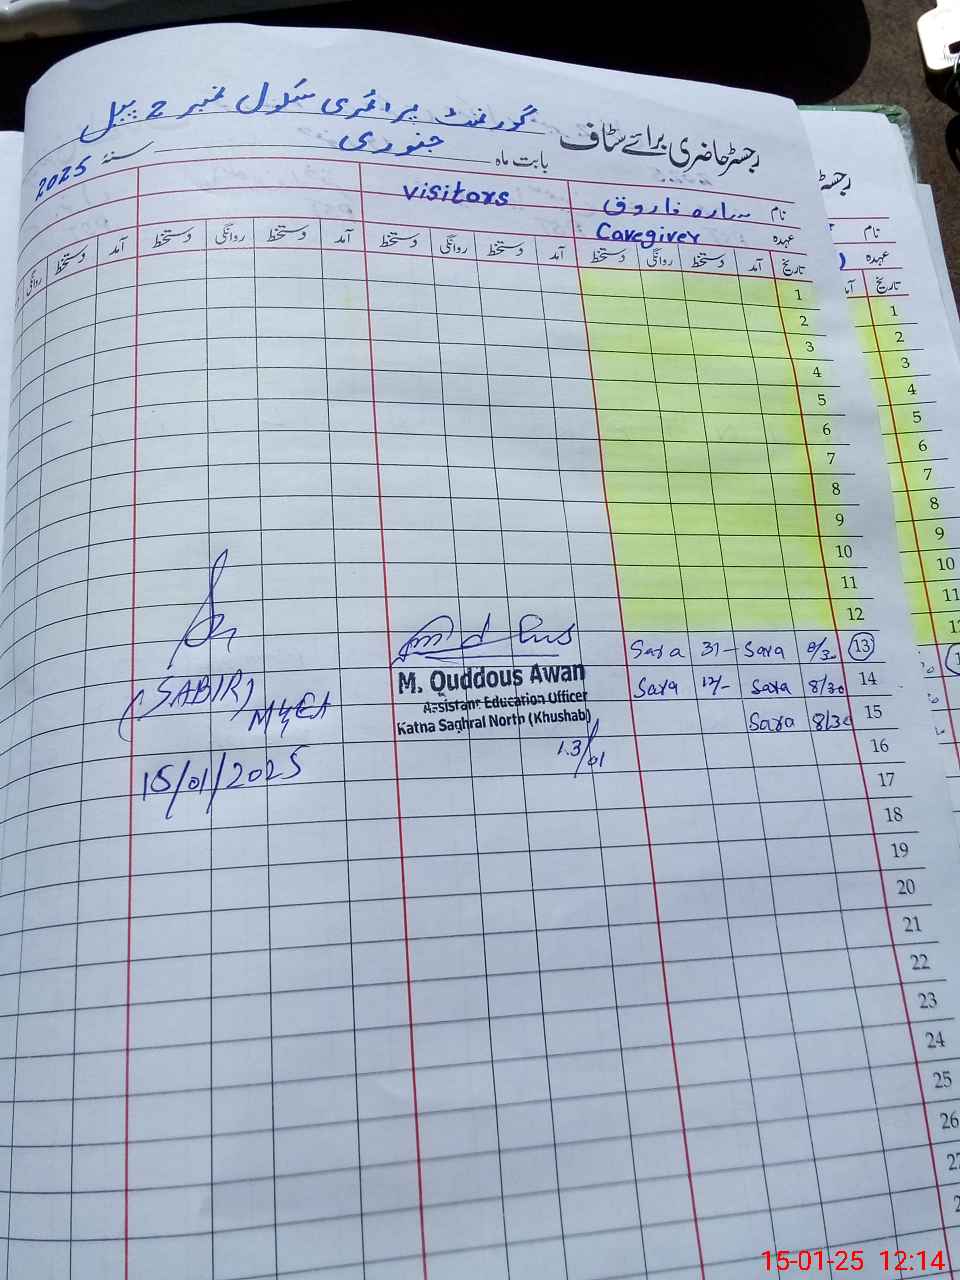 گورنمنٹ پرائمری سکول نمبر 2 پیل
رجسٹر حاضری برائے سٹاف
بابت ماہ جنوری سنہ 2025
نام سارہ فاروق visitors
عہدہ Caregiver
تاریخ آمد دستخط روانگی دستخط آمد دستخط روانگی دستخط آمد دستخط روانگی دستخط آمد دستخط روانگی
1
2
3
4
5
6
7
8
9
10
11
12
13 8/30 Sara Sara
14 8/30 Sara 12/- Sara
15 8/30 Sara
16
17
18
19
20
21
22
23
24
25
26
27
M. Quddous Awan
Assistant Education Officer
Katha Saghral North (Khushab)
13/01
(SABIR)
15/01/2025
نام
عہدہ
تاریخ
1
2
3
4
5
6
7
8
9
10
11
15-01-25 12:14